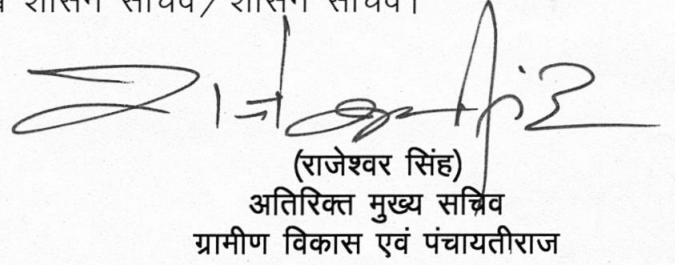 शासन सचिव/शासन सचिव।
(राजेश्वर सिंह)
अतिरिक्त मुख्य सचिव
ग्रामीण विकास एवं पंचायतीराज